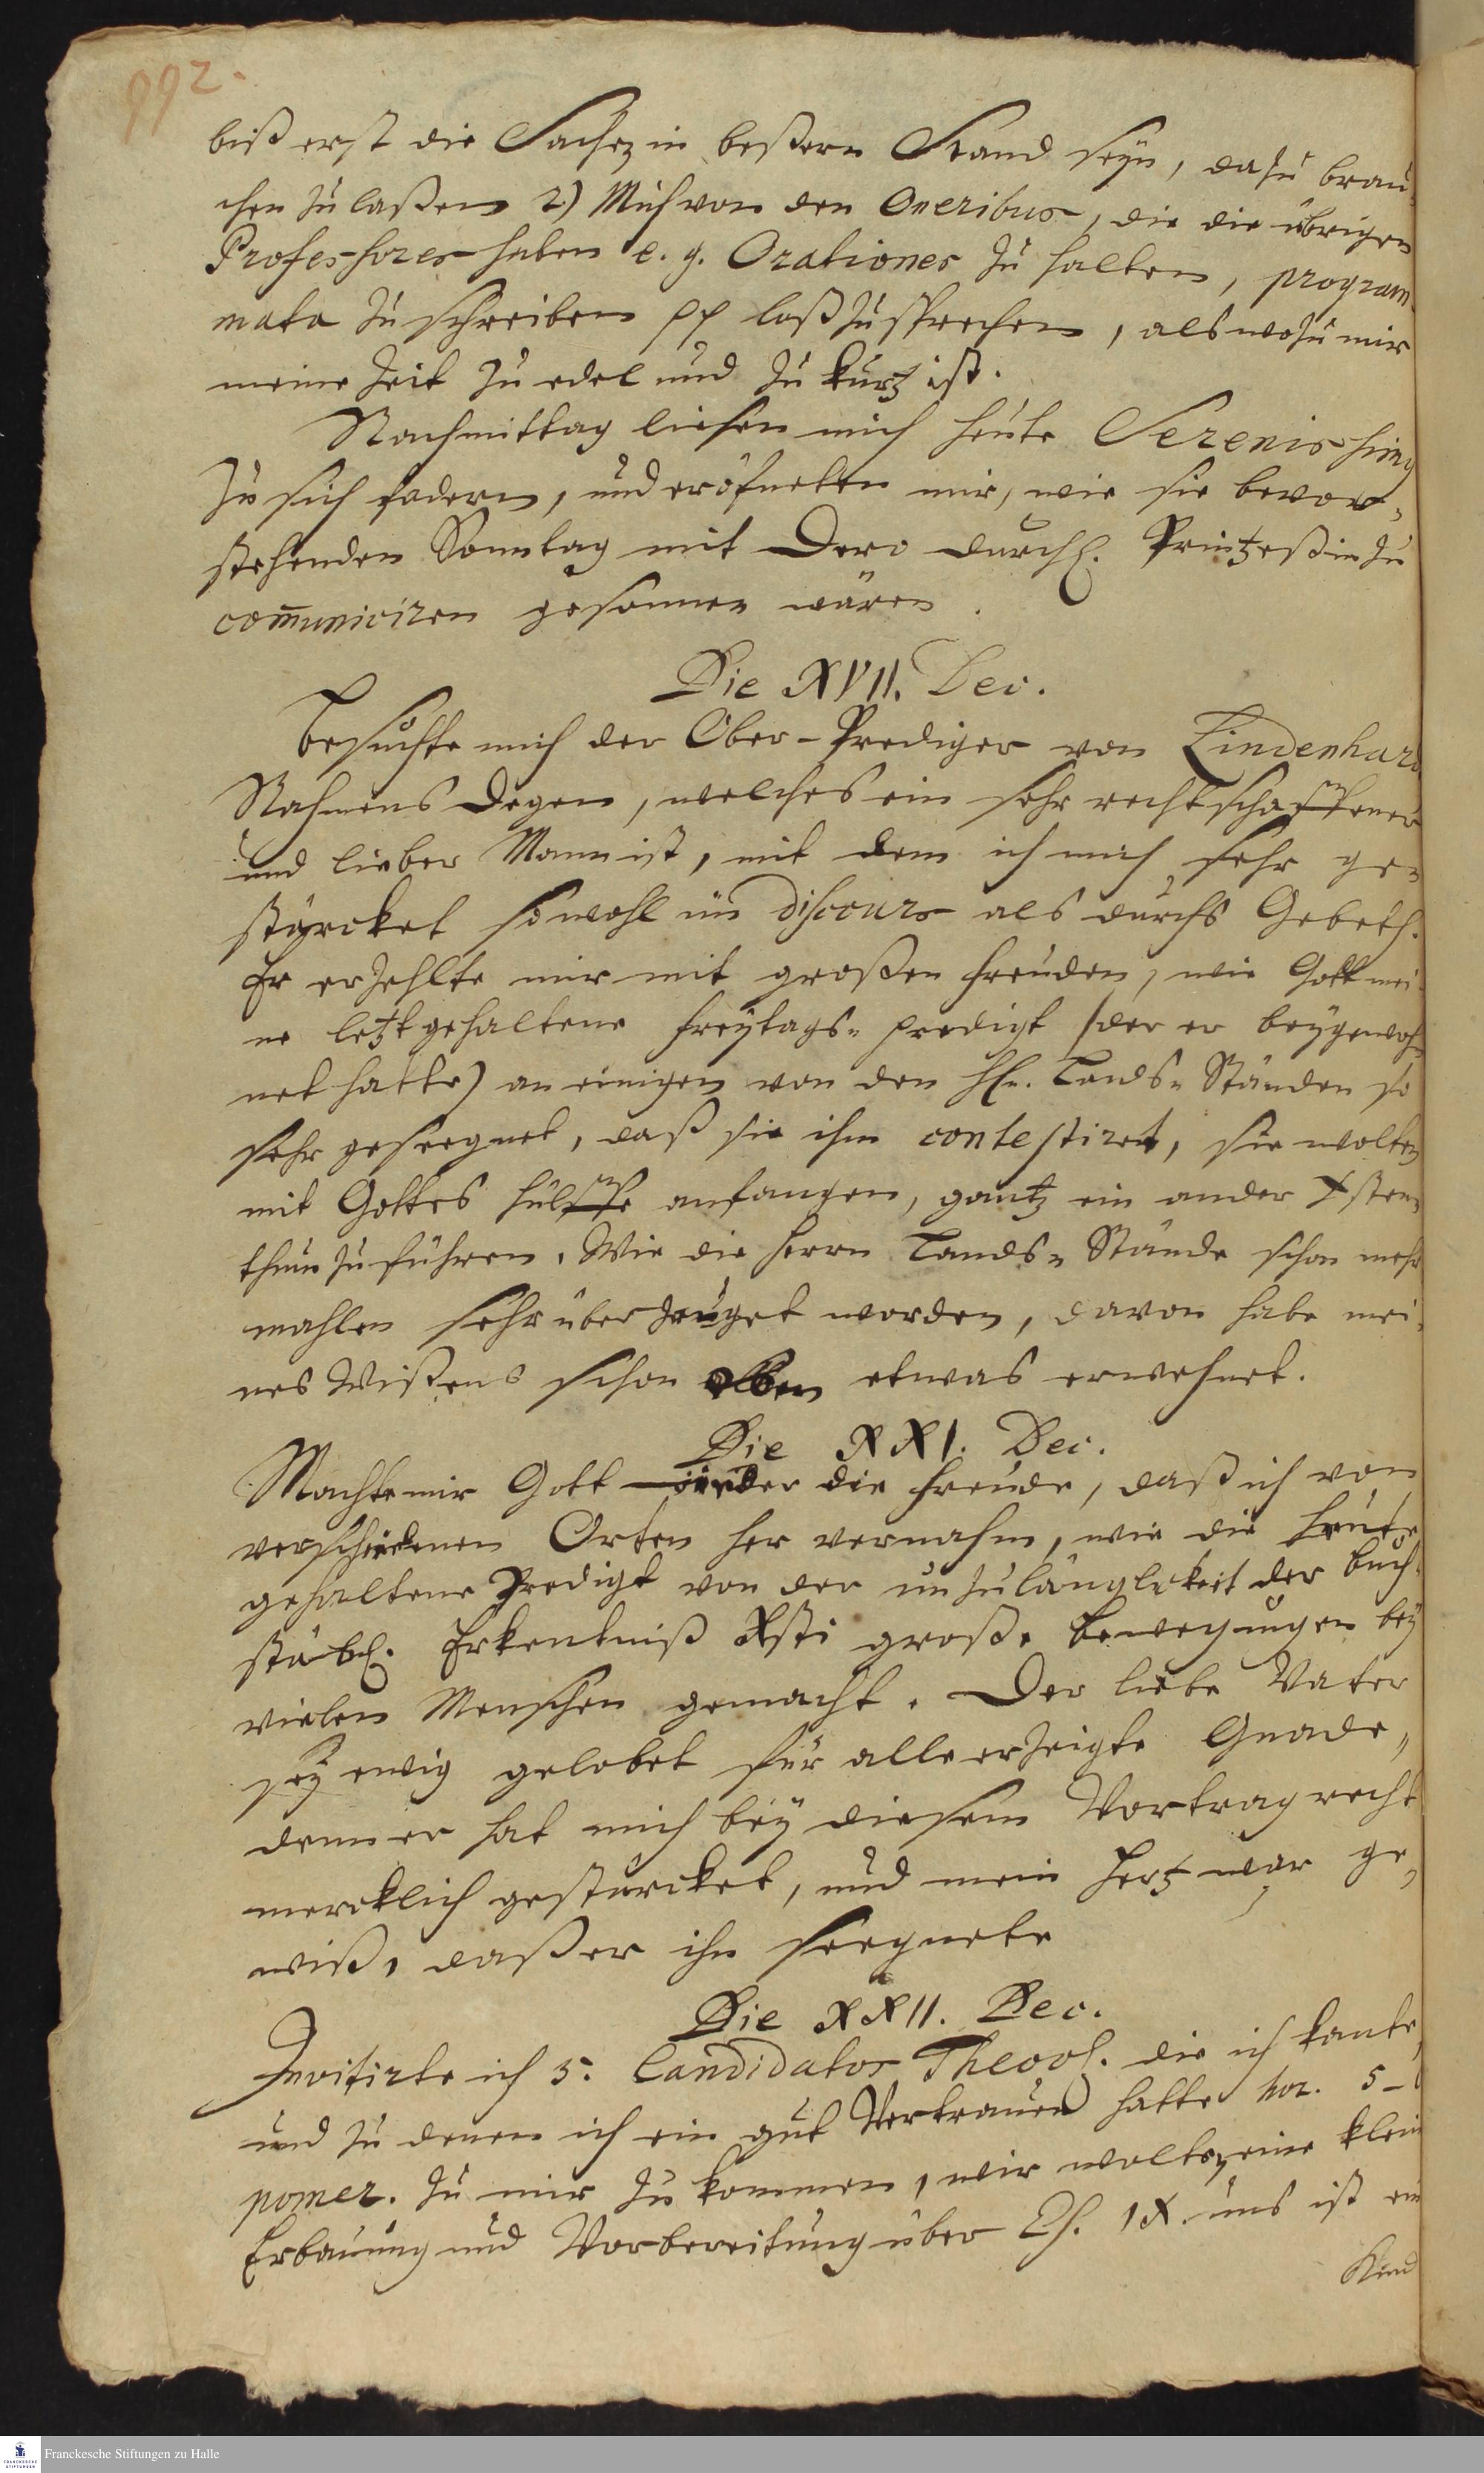 992.
biß erst die Sachen in beßern Stand seyn, dazu brau-
chen zu laßen 2) Mich von den Oneribus, die die übrigen
Professores haben e. g. Orationes zu halten, program-
mata zu schreiben pp loßzusprechen, als wozu mir
meine Zeit zu edel und zu kurtz ist.
Nachmittag ließen mich heute Serenissimq
zu sich fodern, und eröfneten mir, wie sie bevor-
stehenden Sonntag mit Dero Durchl. Printzeßin zu
com̅uniciren gesonnen wären.
Die XVII. Dec.
Besuchte mich der Ober-Prediger von Lindenhard
Nahmens Degen, welches ein sehr rechtschaffener
und lieber Mann ist, mit dem ich mich sehr ge-
stärcket sowohl im discours als durchs Gebeth.
Er erzehlte mir mit großen Freuden, wie Gott mei-
ne letzt gehaltene Freytags-predigt (der er beygewoh-
net hatte) an einigen von den HEn. Lands-Ständen so
sehr geseegnet, daß sie ihm contestiret, sie wolten
mit Gottes Hülffe anfangen, gantz ein ander Xsten-
thum zu führen. Wie die Herrn Lands-Stände schon mehr
mahlen sehr überzeuget worden, davon habe mei-
nes Wißens schon oben etwas erwehnet.
Die XXI. Dec.
Machte mir Gott wieder die Freude, daß ich von
verschiedenen Orten her vernahm, wie die heute
gehaltene Predigt von der unzulänglichkeit der buch-
stäbl. Erkentniß Xsti große bewegungen bey
vielen Menschen gemacht. Der liebe Vater
sey ewig gelobet für alle erzeigte Gnade,
denn er hat mich bey diesem Vortrag recht
mercklich gestärcket, und mein Hertz war ge-
wiß, daß er ihn seegnete
Die XXII. Dec.
Invitirte ich 5. Candidatos Theol. die ich kante,
und zu denen ich ein gut Vertrauen hatte hor. 5-
pomer. zu mir zu kommen, wir wolten eine klein
Erbauung und Vorbereitung über Es. IX. uns ist ein
Kind
Franckesche Stiftungen zu Halle
FRANCKESCHE
STIFTUNGEN